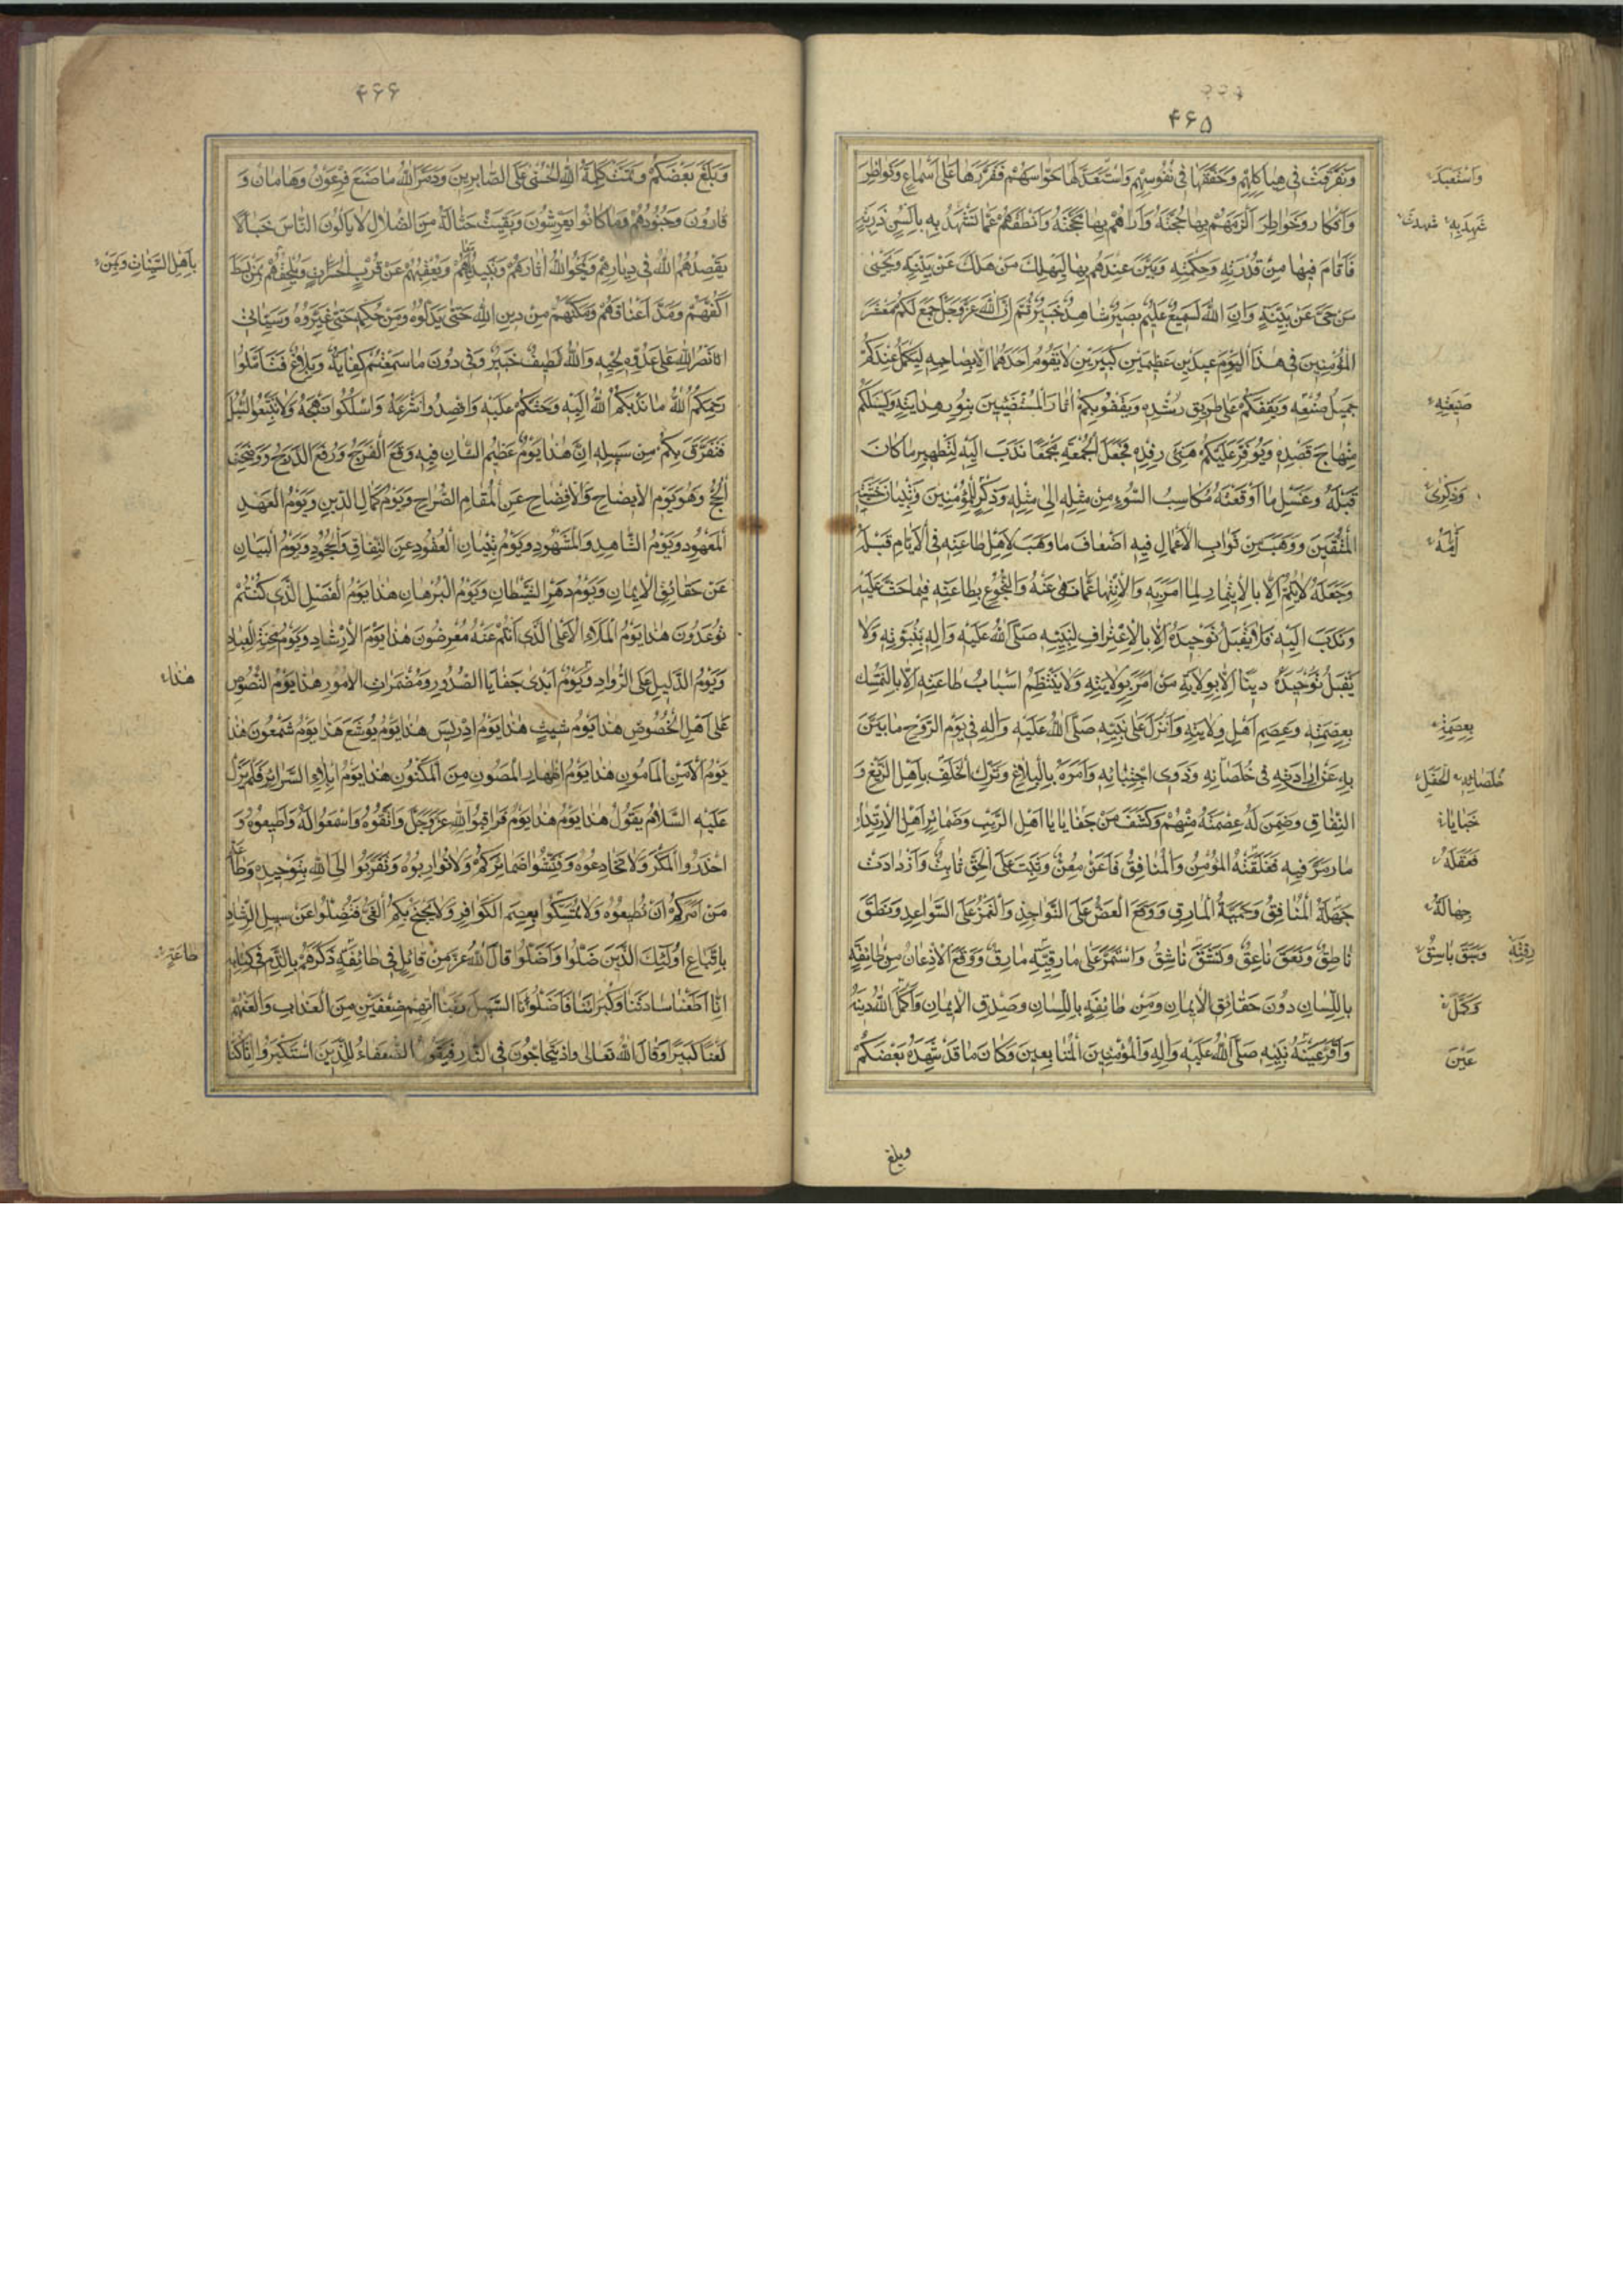 ۴۶۵
وتفرقت في هياكلهم وحققها في نفوسهم واستعد لها حواسهم فقررها على أسماع ونواظر
وأفكار وخواطر ألزمهم بها حجته وأراهم بها محجته وأنطقهم عما تشهد به بألسن ذربة
فأقام فيها من قدرته وحكمته وبين عندهم بها ليهلك من هلك عن بينة ويحيى
من حي عن بينة وإن الله لسميع عليم بصير شاهد خبير ثم إن الله عز وجل جمع لكم معشر
المؤمنين في هذا اليوم عيدين عظيمين كبيرين لا يقوم أحدهما إلا بصاحبه ليكمل عندكم
جميل صنعه ويقفكم على طريق رشده ويقفو بكم آثار المستضيئين بنور هدايته ويسلككم
منهاج قصده ويوفر عليكم هنيئ رفده فجعل الجمعة مجمعا ندب إليه لتطهير ما كان
قبله وغسل ما أوقعته مكاسب السوء من مثله إلى مثله وذكر للمؤمنين وتبيان خشية
المتقين ووهب من ثواب الأعمال فيه أضعاف ما وهب لأهل طاعته في الأيام قبله
وجعله لا يتم إلا بالايتمار لما أمر به والانتهاء عما نهى عنه والنجوع بطاعته فيما حث عليه
وندب إليه فلا يقبل توحيده إلا بالاعتراف لنبيه صلى الله عليه وآله بنبوته ولا
يقبل توحيده دينا إلا بولاية من أمر بولايته ولا ينتظم أسباب طاعته إلا بالتمسك
بعصمته وعصم أهل ولايته وأنزل على نبيه صلى الله عليه وآله في يوم الدوح ما بين
به عن إرادته في خلصائه وذوي اجتبائه وأمره بالبلاغ وترك الخلف بأهل الزيغ و
النفاق وضمن له عصمته منهم وكشف من خفايا يا أهل الريب وضمائر أهل الارتداد
ما رمز فيه فتلقته المؤمن والمنافق فأعن معن وثبت على الحق ثابت وازدادت
جهلة المنافق وحمية المارق ووقع العض على النواجذ والغمز على السواعد ونطق
ناطق ونعق ناعق ونشق ناشق واستمر على مارقيته مارق ووقع الإذعان من طائفة
باللسان دون حقائق الإيمان ومن طائفة باللسان وصدق الإيمان وأكمل الله دينه
وأقر عينه نبيه صلى الله عليه وآله والمؤمنين المتابعين وكان ما قد شهد بعضكم
واستعبد
شهد به شهدت
صنيعته
وذكرى
أمه
بعصمه
خلصائه الحفل
خبايا
فعقله
جهالة
وبسق باسق
وكمل
عين
وبلغ
۴۶۶
وبلغ بعضكم وتمت كلمة الله الحسنى على الصابرين ودمر الله ما صنع فرعون وهامان و
قارون وجنودهم وما كانوا يعرشون وبقيت حثالة من الضلال لا يألون الناس خبالا
يقصدهم الله في ديارهم ويمحو الله آثارهم ويبيد معالمهم ويعقبهم عن قرب الحسرات ويلحقهم بمن بسط
أكفهم ومد أعناقهم ومكنهم من دين الله حتى بدلوه ومن حكمه حتى غيروه وسيأتي
نصر الله على عدوه لحينه والله لطيف خبير وفي دون ما سمعتم كفاية وبلاغ فتأملوا
رحمكم الله ما ندبكم الله إليه وحثكم عليه واقصدوا شرعه واسلكوا نهجه ولا تتبعوا السبل
فتفرق بكم من سبيله إن هذا يوم عظيم الشأن فيه وقع الفرج ورفع الدرج ووضحت
الحج وهو يوم الإيضاح والإفضاح عن المقام الصراح ويوم كمال الدين ويوم العهد
المعهود ويوم الشاهد والمشهود ويوم تبيان العقود عن النفاق والجحود ويوم البيان
عن حقائق الإيمان ويوم دحر الشيطان ويوم البرهان هذا يوم الفصل الذي كنتم
توعدون هذا يوم الملاء الأعلى الذي أنتم عنه معرضون هذا يوم الإرشاد ويوم محنة العباد
ويوم الدليل على الرواد ويوم أبدى خفايا الصدور ومضمرات الأمور هذا يوم النصوص
على أهل الخصوص هذا يوم شيث هذا يوم إدريس هذا يوم يوشع هذا يوم شمعون هذا
يوم الأمن المأمون هذا يوم إظهار المصون من المكنون هذا يوم إبلاء السرائر فلم يزل
عليه السلام يقول هذا يوم هذا يوم فراقبوا الله عز وجل واتقوه واسمعوا له وأطيعوه و
احذروا المكر ولا تخادعوه وفتشوا ضمائركم ولا تواربوه وتقربوا إلى الله بتوحيده وطاعة
من أمركم أن تطيعوه ولا تمسكوا بعصم الكوافر ولا يجنح بكم الغي فتضلوا عن سبيل الرشاد
باتباع أولئك الذين ضلوا وأضلوا قال الله عز من قائل في طائفة ذكرهم بالذم في كتابه
إنا أطعنا سادتنا وكبراءنا فأضلونا السبيلا ربنا آتهم ضعفين من العذاب والعنهم
لعنا كبيرا وقال الله تعالى وإذ يتحاجون في النار فيقول الضعفاء للذين استكبروا إنا كنا
هذا
طاعة